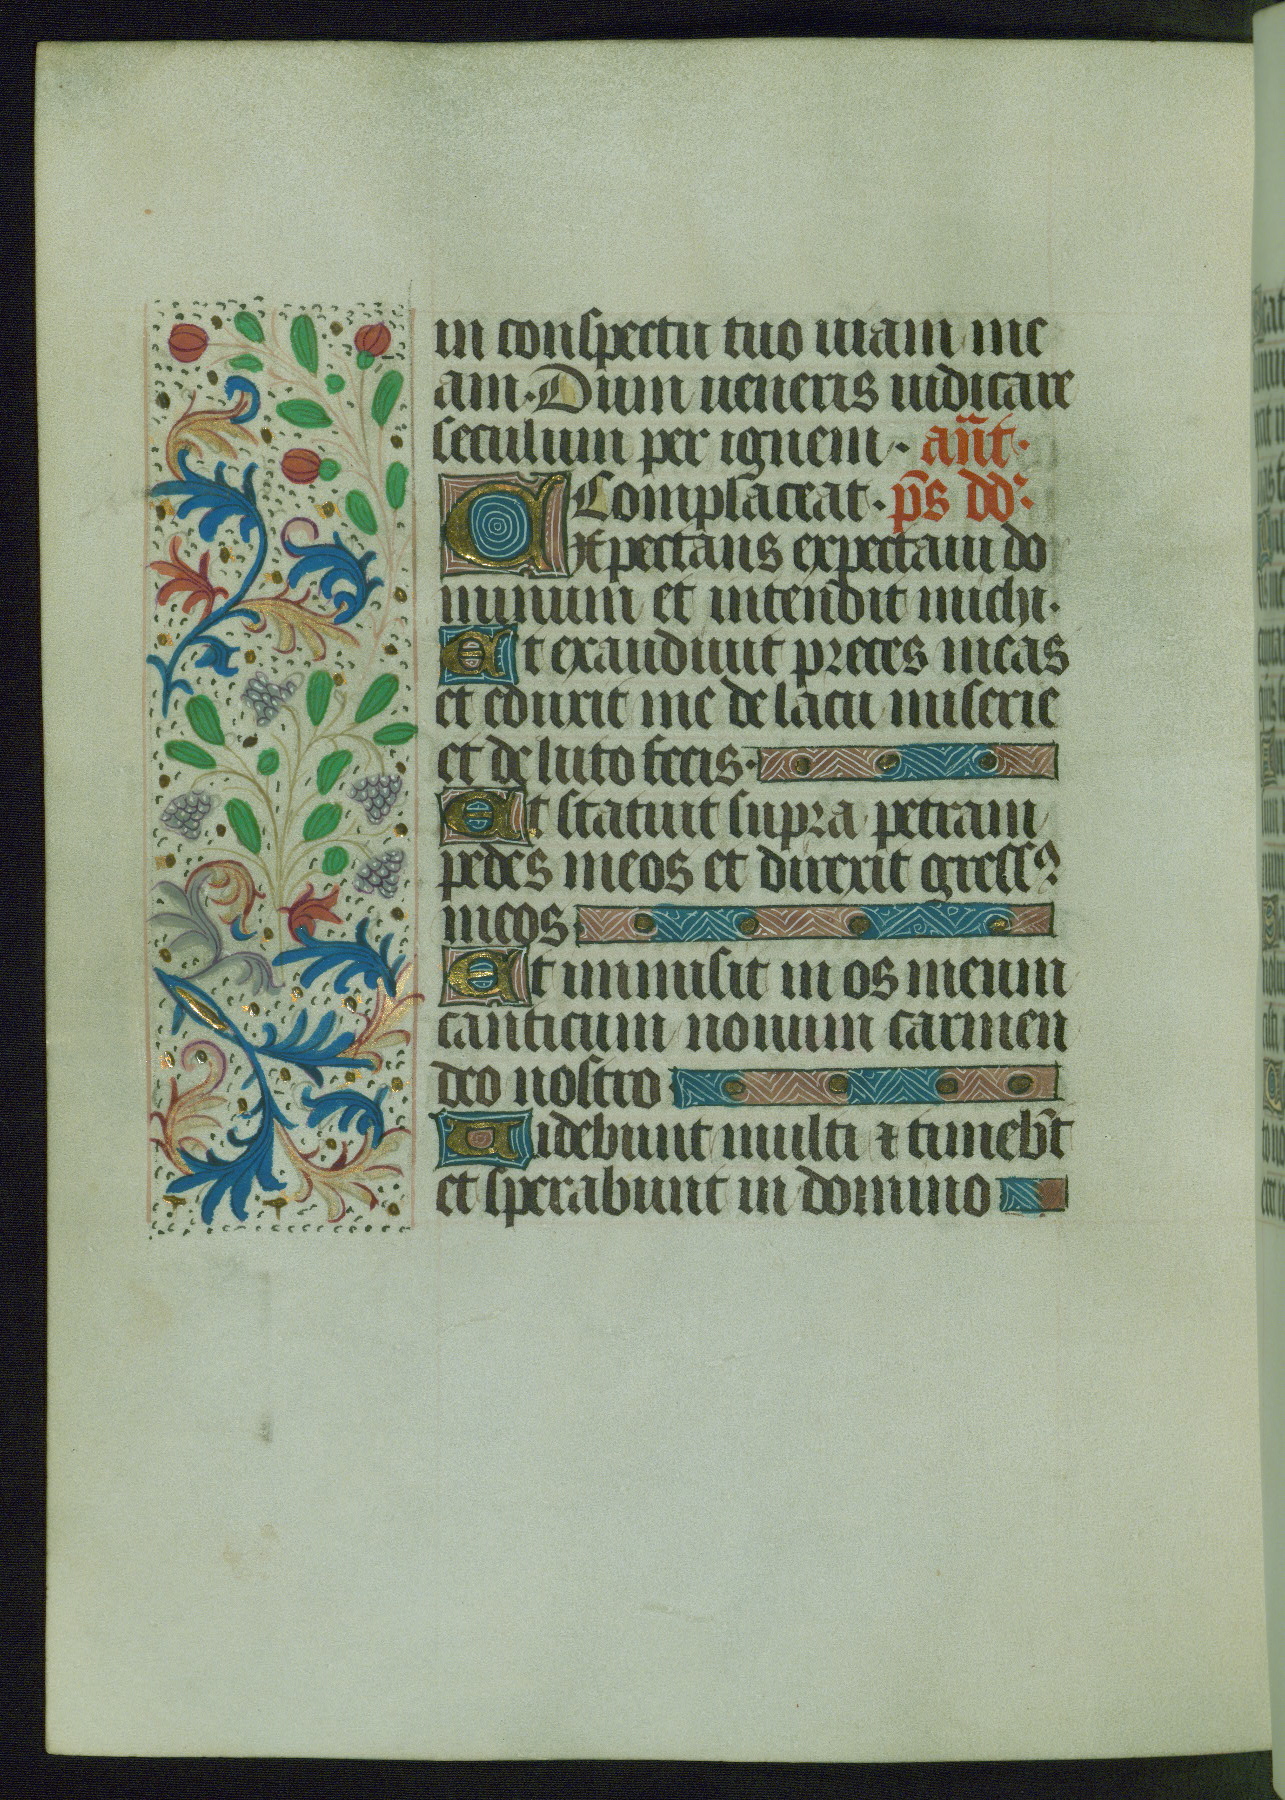 in conspectu tuo uiam me
am. Dum ueneris iudicare
seculum per ignem. ant̄.
Complaceat. p̄s dd̄:
Expectans expectaui do
minum et intendit michi.
Et exaudiuit preces meas
et eduxit me de lacu miserie
et de luto fecis.
Et statuit supra petram
pedes meos et direxit gressꝰ
meos.
Et inmisit in os meum
canticum nouum carmen
deo nostro
Uidebunt multi ⁊ timeb̄t
et sperabunt in domino